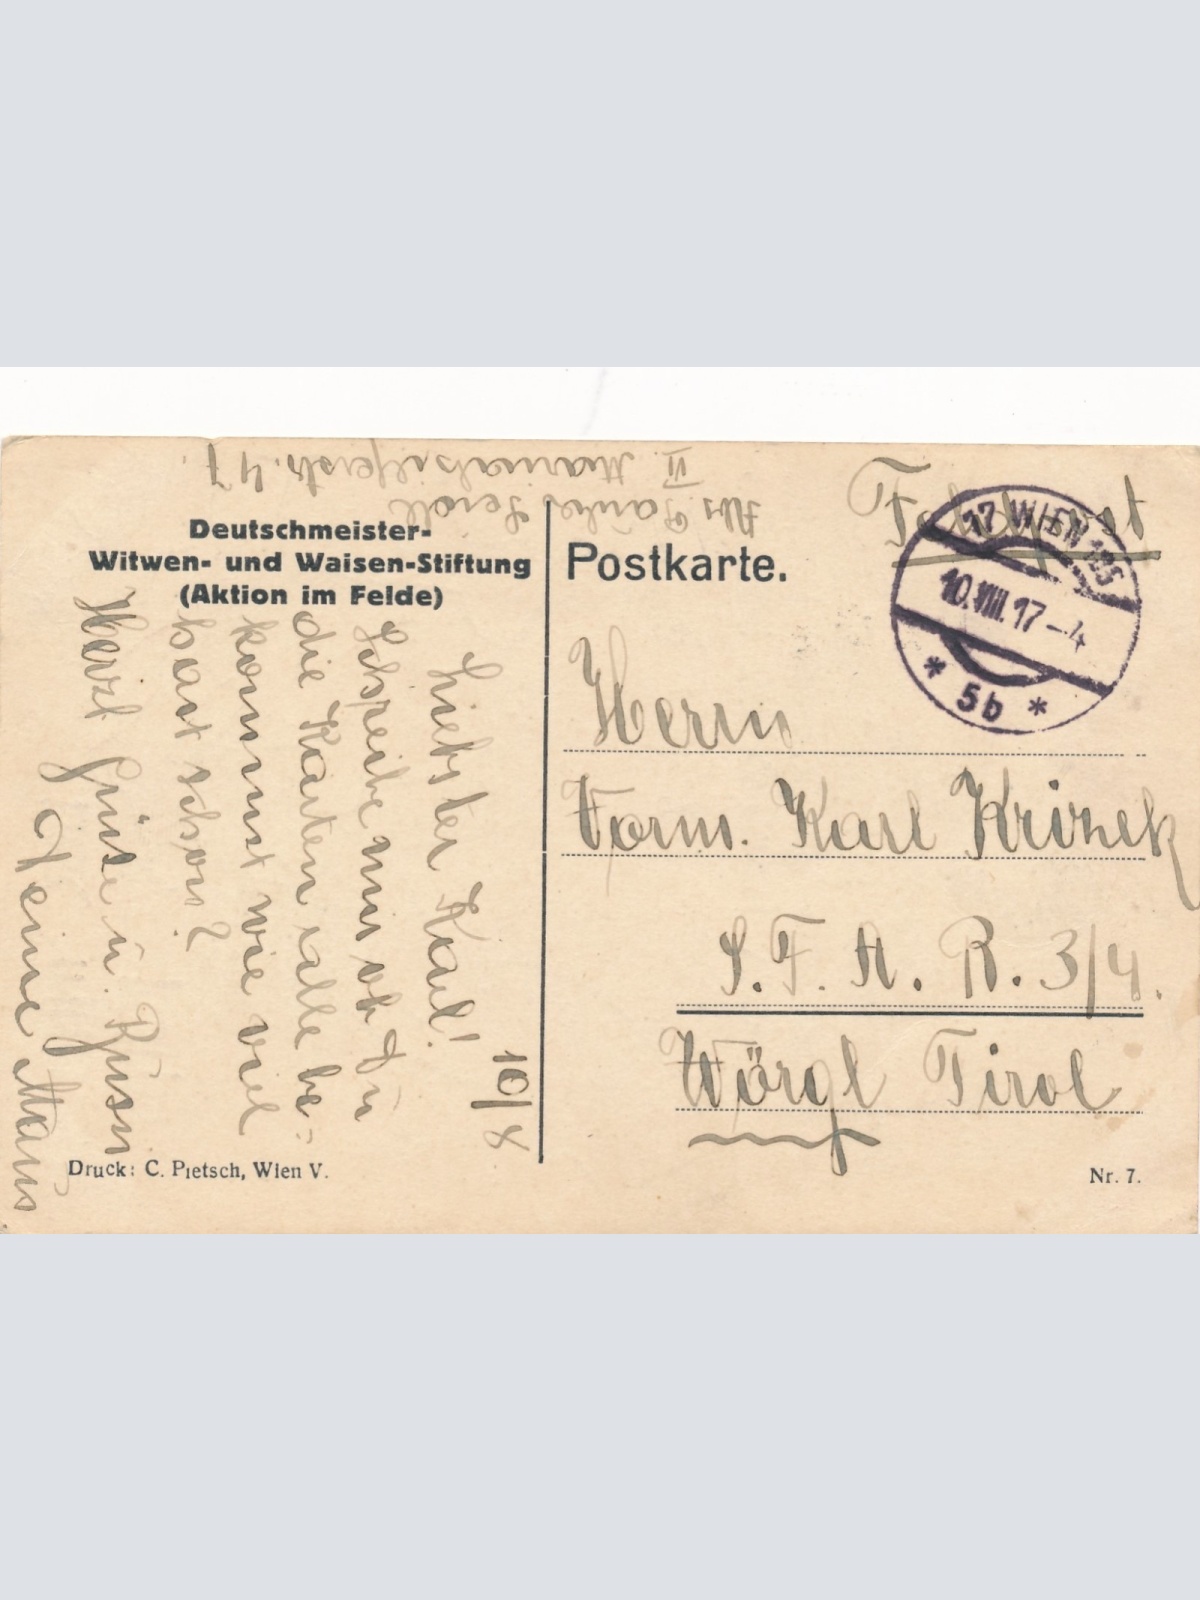 VI. Mariahilferstr. 47.
Feldpost
17 WIEN 125
10.VIII.17-4
* 5b *
Deutschmeister-
Witwen- und Waisen-Stiftung
(Aktion im Felde)
Postkarte.
Herrn
Form. Karl Krizek
S. F. A. R. 3/4.
Wörgl Tirol
10/8
Liebster Karl!
Schreibe mir ob Du
die Karten alle be-
kommst wie viel
hast schon?
Herzl Grüße u.
Deine
Druck: C. Pietsch, Wien V.
Nr. 7.